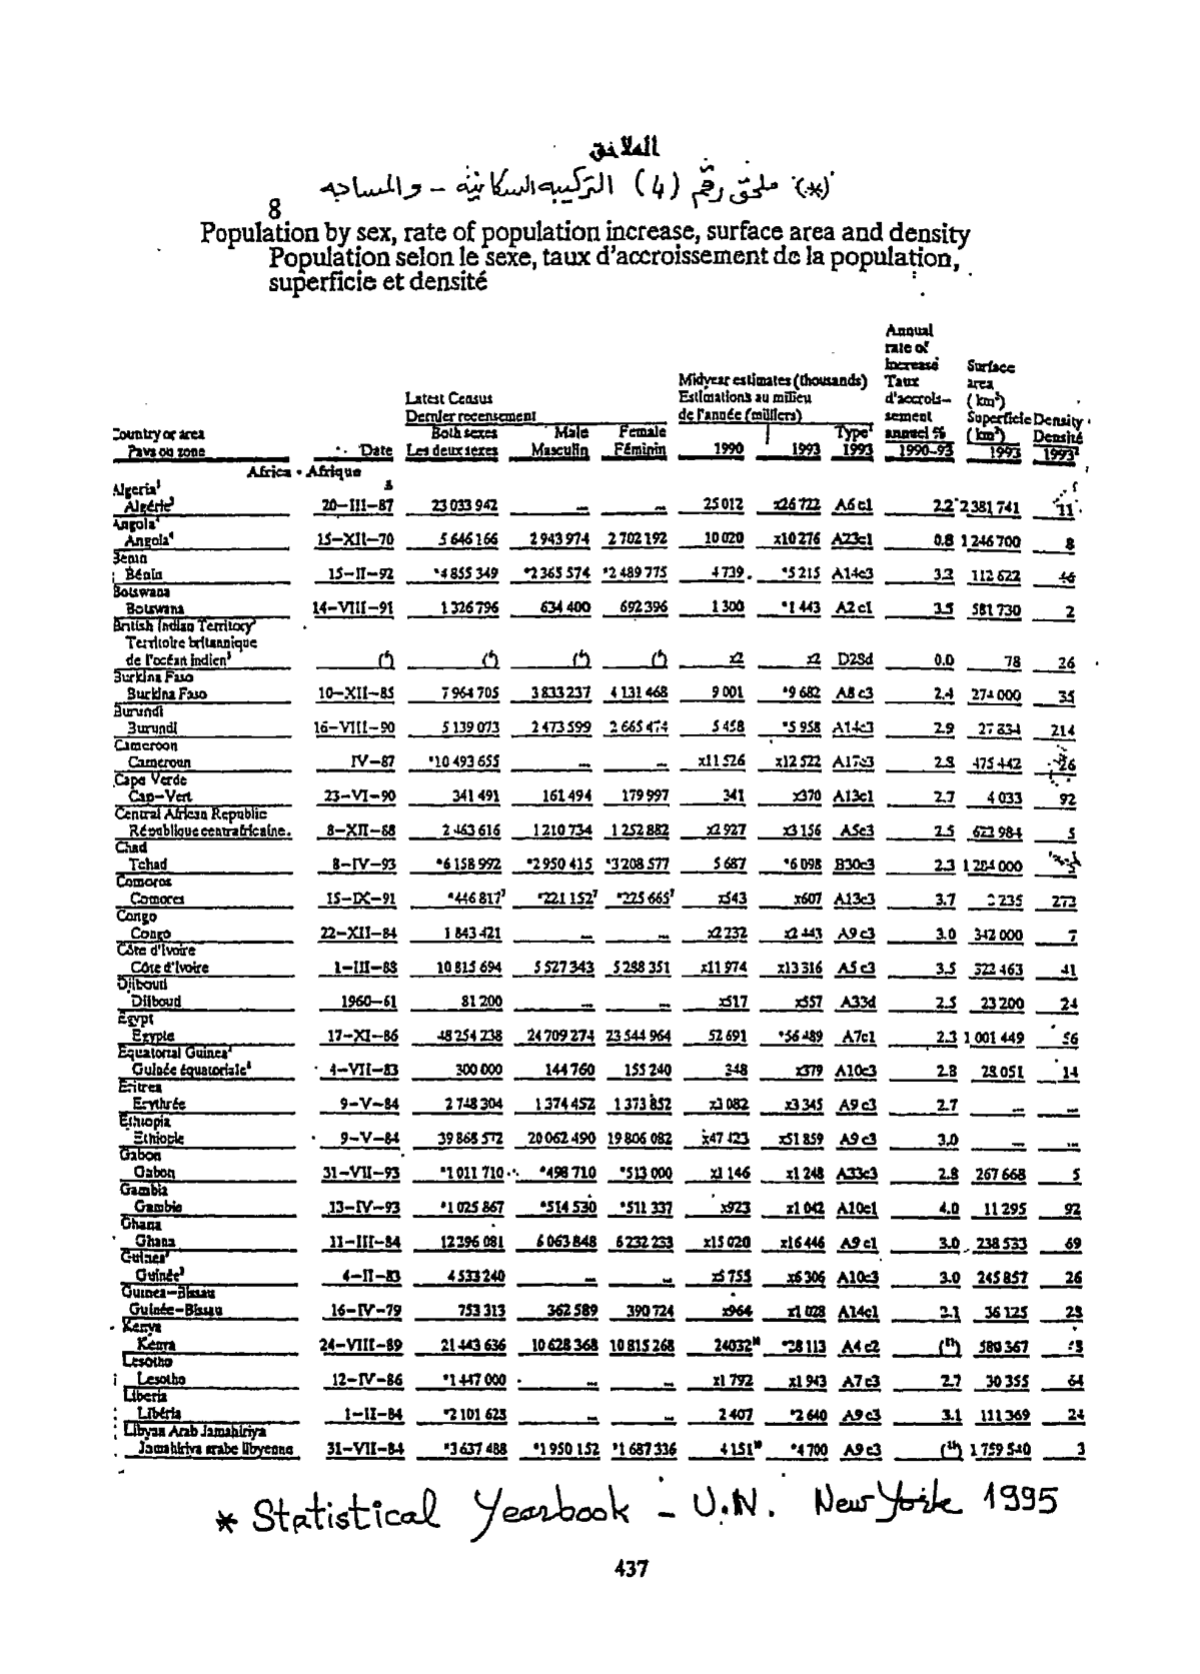 الملاحق
(*) ملحق رقم (4) التركيبه السكانية - والمساحه
8
Population by sex, rate of population increase, surface area and density
Population selon le sexe, taux d'accroissement de la population,
superficie et densité
Annual
rate of
increase Surface
Midyear estimates (thousands) Taux area
Latest Census Estimations au milieu d'accrois- (km²)
Dernier recensement de l'année (milliers) sement Superficie Density
Country or area Both sexes Male Female Type¹ annuel % (km²) Densité
Pays ou zone Date Les deux sexes Masculin Féminin 1990 1993 1993 1990-93 1993 1993²
Africa • Afrique
Algeria³
Algérie³ 20-III-87 23 033 942 ... ... 25 012 x26 722 A6 c1 2.2 2 381 741 11
Angola⁴
Angola⁴ 15-XII-70 5 646 166 2 943 974 2 702 192 10 020 x10 276 A23c1 0.8 1 246 700 8
Benin
Bénin 15-II-92 *4 855 349 *2 365 574 *2 489 775 4 739 *5 215 A14c3 3.2 112 622 46
Botswana
Botswana 14-VIII-91 1 326 796 634 400 692 396 1 300 *1 443 A2 c1 3.5 581 730 2
British Indian Territory
Territoire britannique
de l'océan indien⁵ x2 x2 D28d 0.0 78 26
Burkina Faso
Burkina Faso 10-XII-85 7 964 705 3 833 237 4 131 468 9 001 *9 682 A8 c3 2.4 274 000 35
Burundi
Burundi 16-VIII-90 5 139 073 2 473 599 2 665 474 5 458 *5 958 A14c3 2.9 27 834 214
Cameroon
Cameroun IV-87 *10 493 655 ... ... x11 526 x12 522 A17c3 2.8 475 442 26
Cape Verde
Cap-Vert 23-VI-90 341 491 161 494 179 997 341 x370 A13c1 2.7 4 033 92
Central African Republic
République centrafricaine. 8-XII-88 2 463 616 1 210 734 1 252 882 x2 927 x3 156 A5c3 2.5 622 984 5
Chad
Tchad 8-IV-93 *6 158 992 *2 950 415 *3 208 577 5 687 *6 098 B30c3 2.3 1 284 000 5
Comoros
Comores 15-IX-91 *446 817⁷ *221 152⁷ *225 665⁷ x543 x607 A13c3 3.7 2 235 272
Congo
Congo 22-XII-84 1 843 421 ... ... x2 232 x2 443 A9 c3 3.0 342 000 7
Côte d'Ivoire
Côte d'Ivoire 1-III-88 10 815 694 5 527 343 5 288 351 x11 974 x13 316 A5 c3 3.5 322 463 41
Djibouti
Djibouti 1960-61 81 200 ... ... x517 x557 A33d 2.5 23 200 24
Egypt
Egypte 17-XI-86 48 254 238 24 709 274 23 544 964 52 691 *56 489 A7c1 2.3 1 001 449 56
Equatorial Guinea
Guinée équatoriale 4-VII-83 300 000 144 760 155 240 348 x379 A10c3 2.8 28 051 14
Eritrea
Erythrée 9-V-84 2 748 304 1 374 452 1 373 852 x3 082 x3 345 A9 c3 2.7 ... ...
Ethiopia
Ethiopie 9-V-84 39 868 572 20 062 490 19 806 082 x47 423 x51 859 A9 c3 3.0 ... ...
Gabon
Gabon 31-VII-93 *1 011 710 *498 710 *513 000 x1 146 x1 248 A33c3 2.8 267 668 5
Gambia
Gambie 13-IV-93 *1 025 867 *514 530 *511 337 x923 x1 042 A10c1 4.0 11 295 92
Ghana
Ghana 11-III-84 12 296 081 6 063 848 6 232 233 x15 020 x16 446 A9 c1 3.0 238 533 69
Guinea³
Guinée³ 4-II-83 4 533 240 ... ... x5 755 x6 306 A10c3 3.0 245 857 26
Guinea-Bissau
Guinée-Bissau 16-IV-79 753 313 362 589 390 724 x964 x1 028 A14c1 2.1 36 125 28
Kenya
Kenya 24-VIII-89 21 443 636 10 628 368 10 815 268 24032 *28 113 A4 c2 580 367
Lesotho
Lesotho 12-IV-86 *1 447 000 ... ... x1 792 x1 943 A7 c3 2.7 30 355 64
Liberia
Libéria 1-II-84 *2 101 628 ... ... 2 407 *2 640 A9 c3 3.1 111 369 24
Libyan Arab Jamahiriya
Jamahiriya arabe libyenne 31-VII-84 *3 637 488 *1 950 152 *1 687 336 4 151 *4 700 A9 c3 1 759 540 3
* Statistical Yearbook - U.N. New York 1995
437